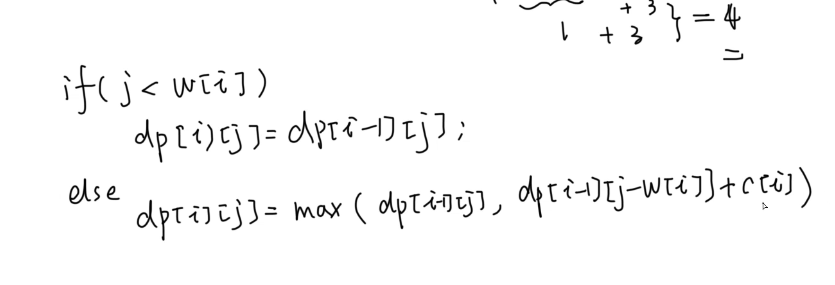 + 3
1 + 3 } = 4
if( j < w[i])
dp[i)[j]= dp[i-1][j];
else
dp[i][j]= max( dp[i-1][j], dp[i-1][j-w[i]]+c[i])